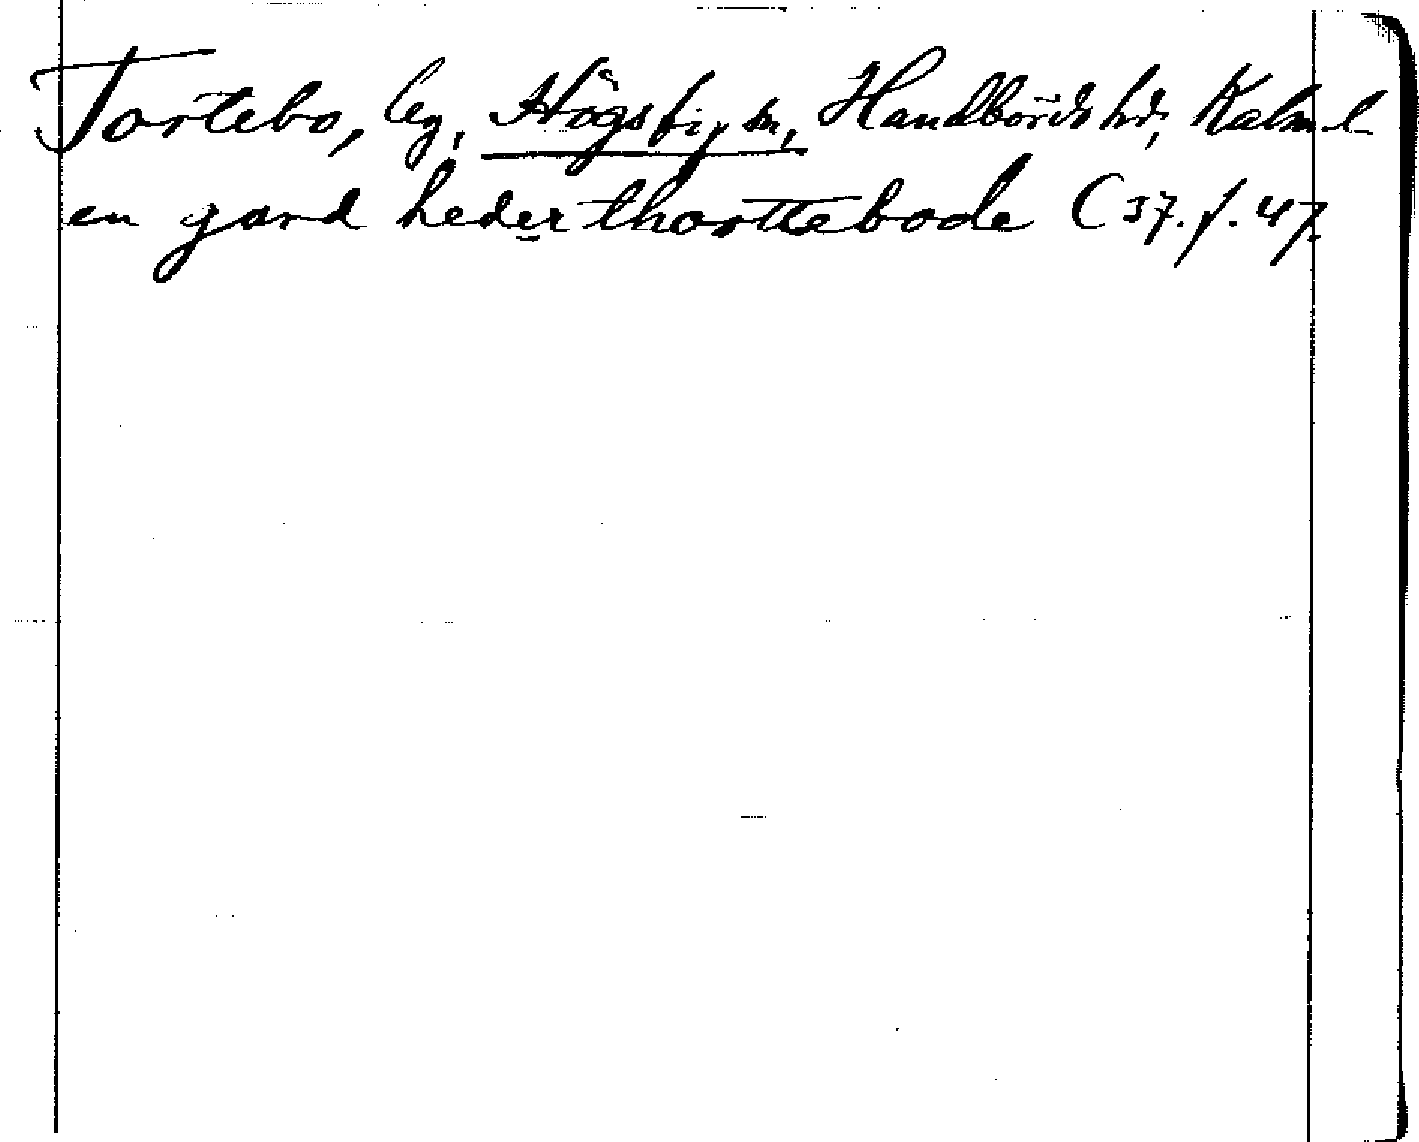 Tortebo, by, Högsby sn, Handbörds hd, Kalm. l.
en gard heder thorttebode (37.f.47.